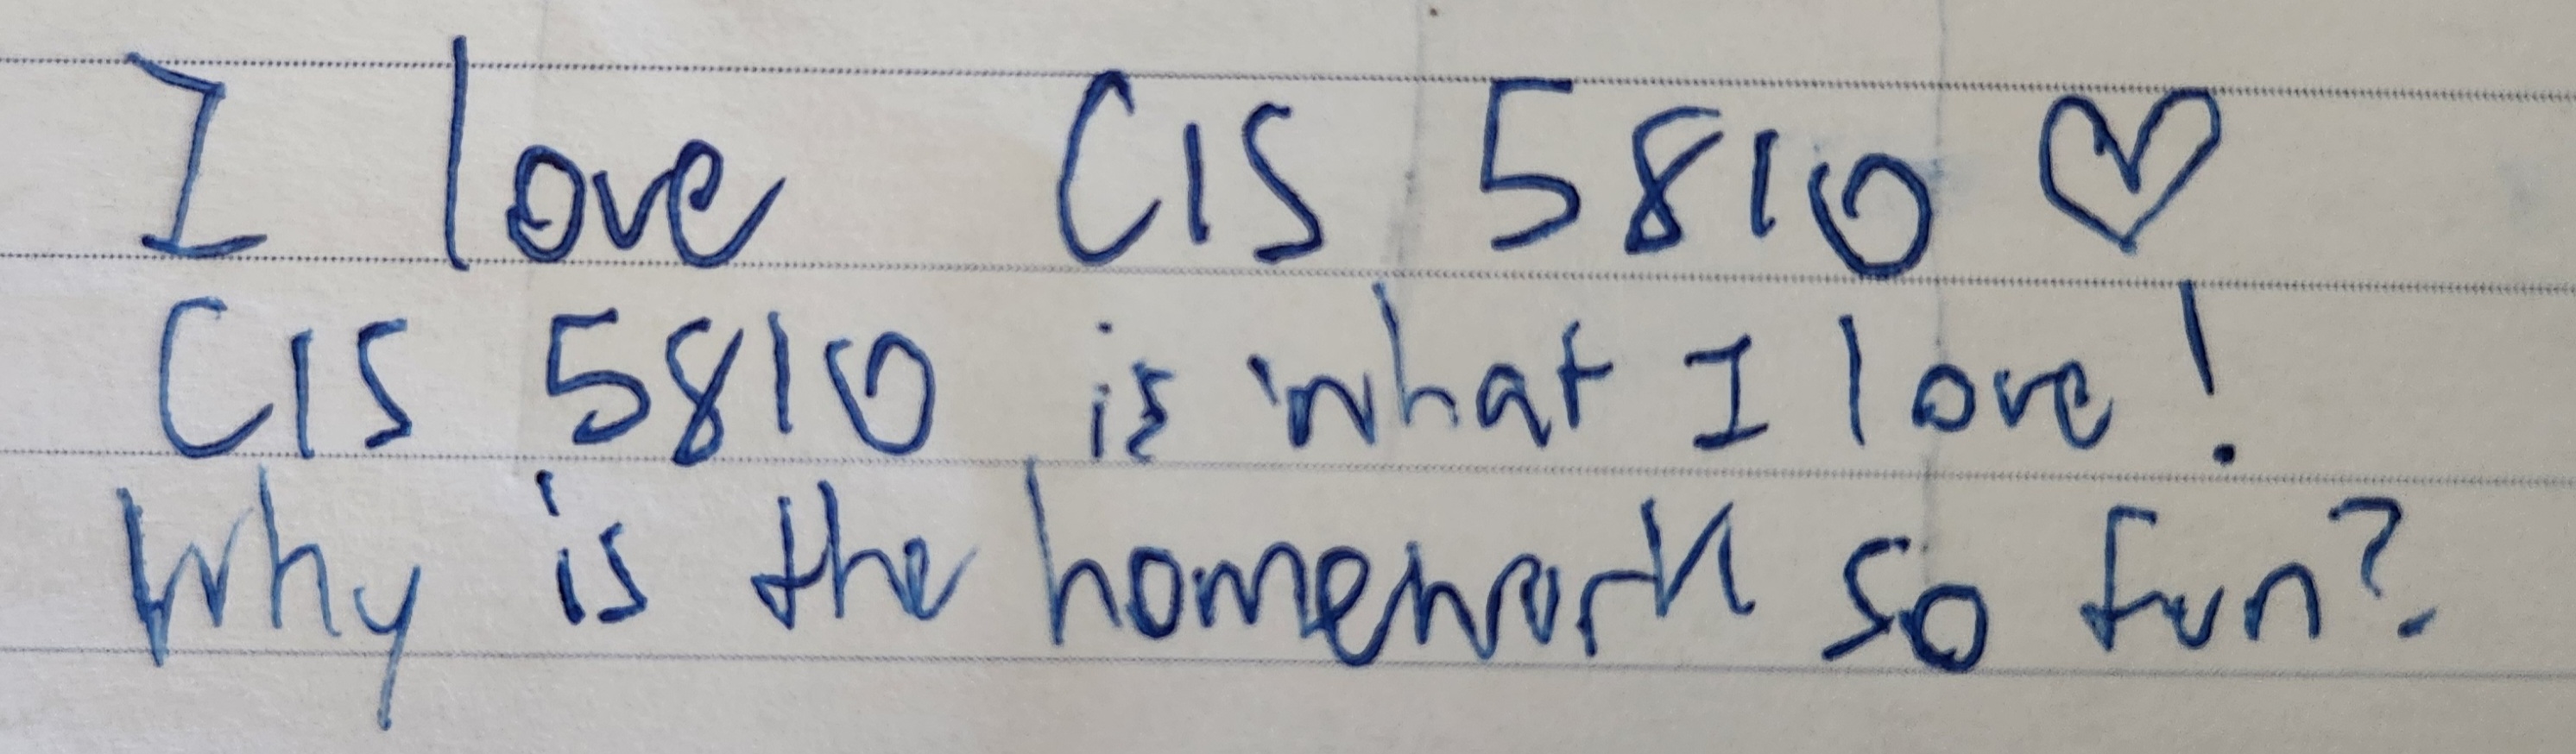 I love CIS 5810 ♡
CIS 5810 is what I love!
Why is the homework so fun?